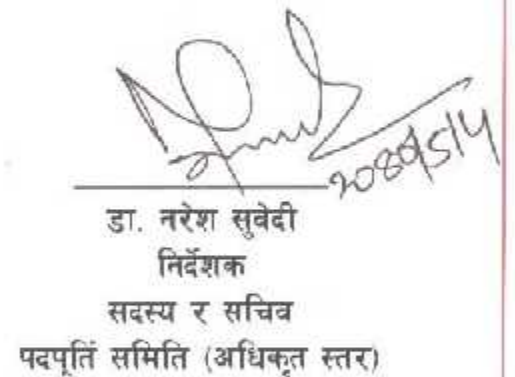 2080/5/4
डा. नरेश सुवेदी
निर्देशक
सदस्य र सचिव
पदपूर्ति समिति (अधिकृत स्तर)